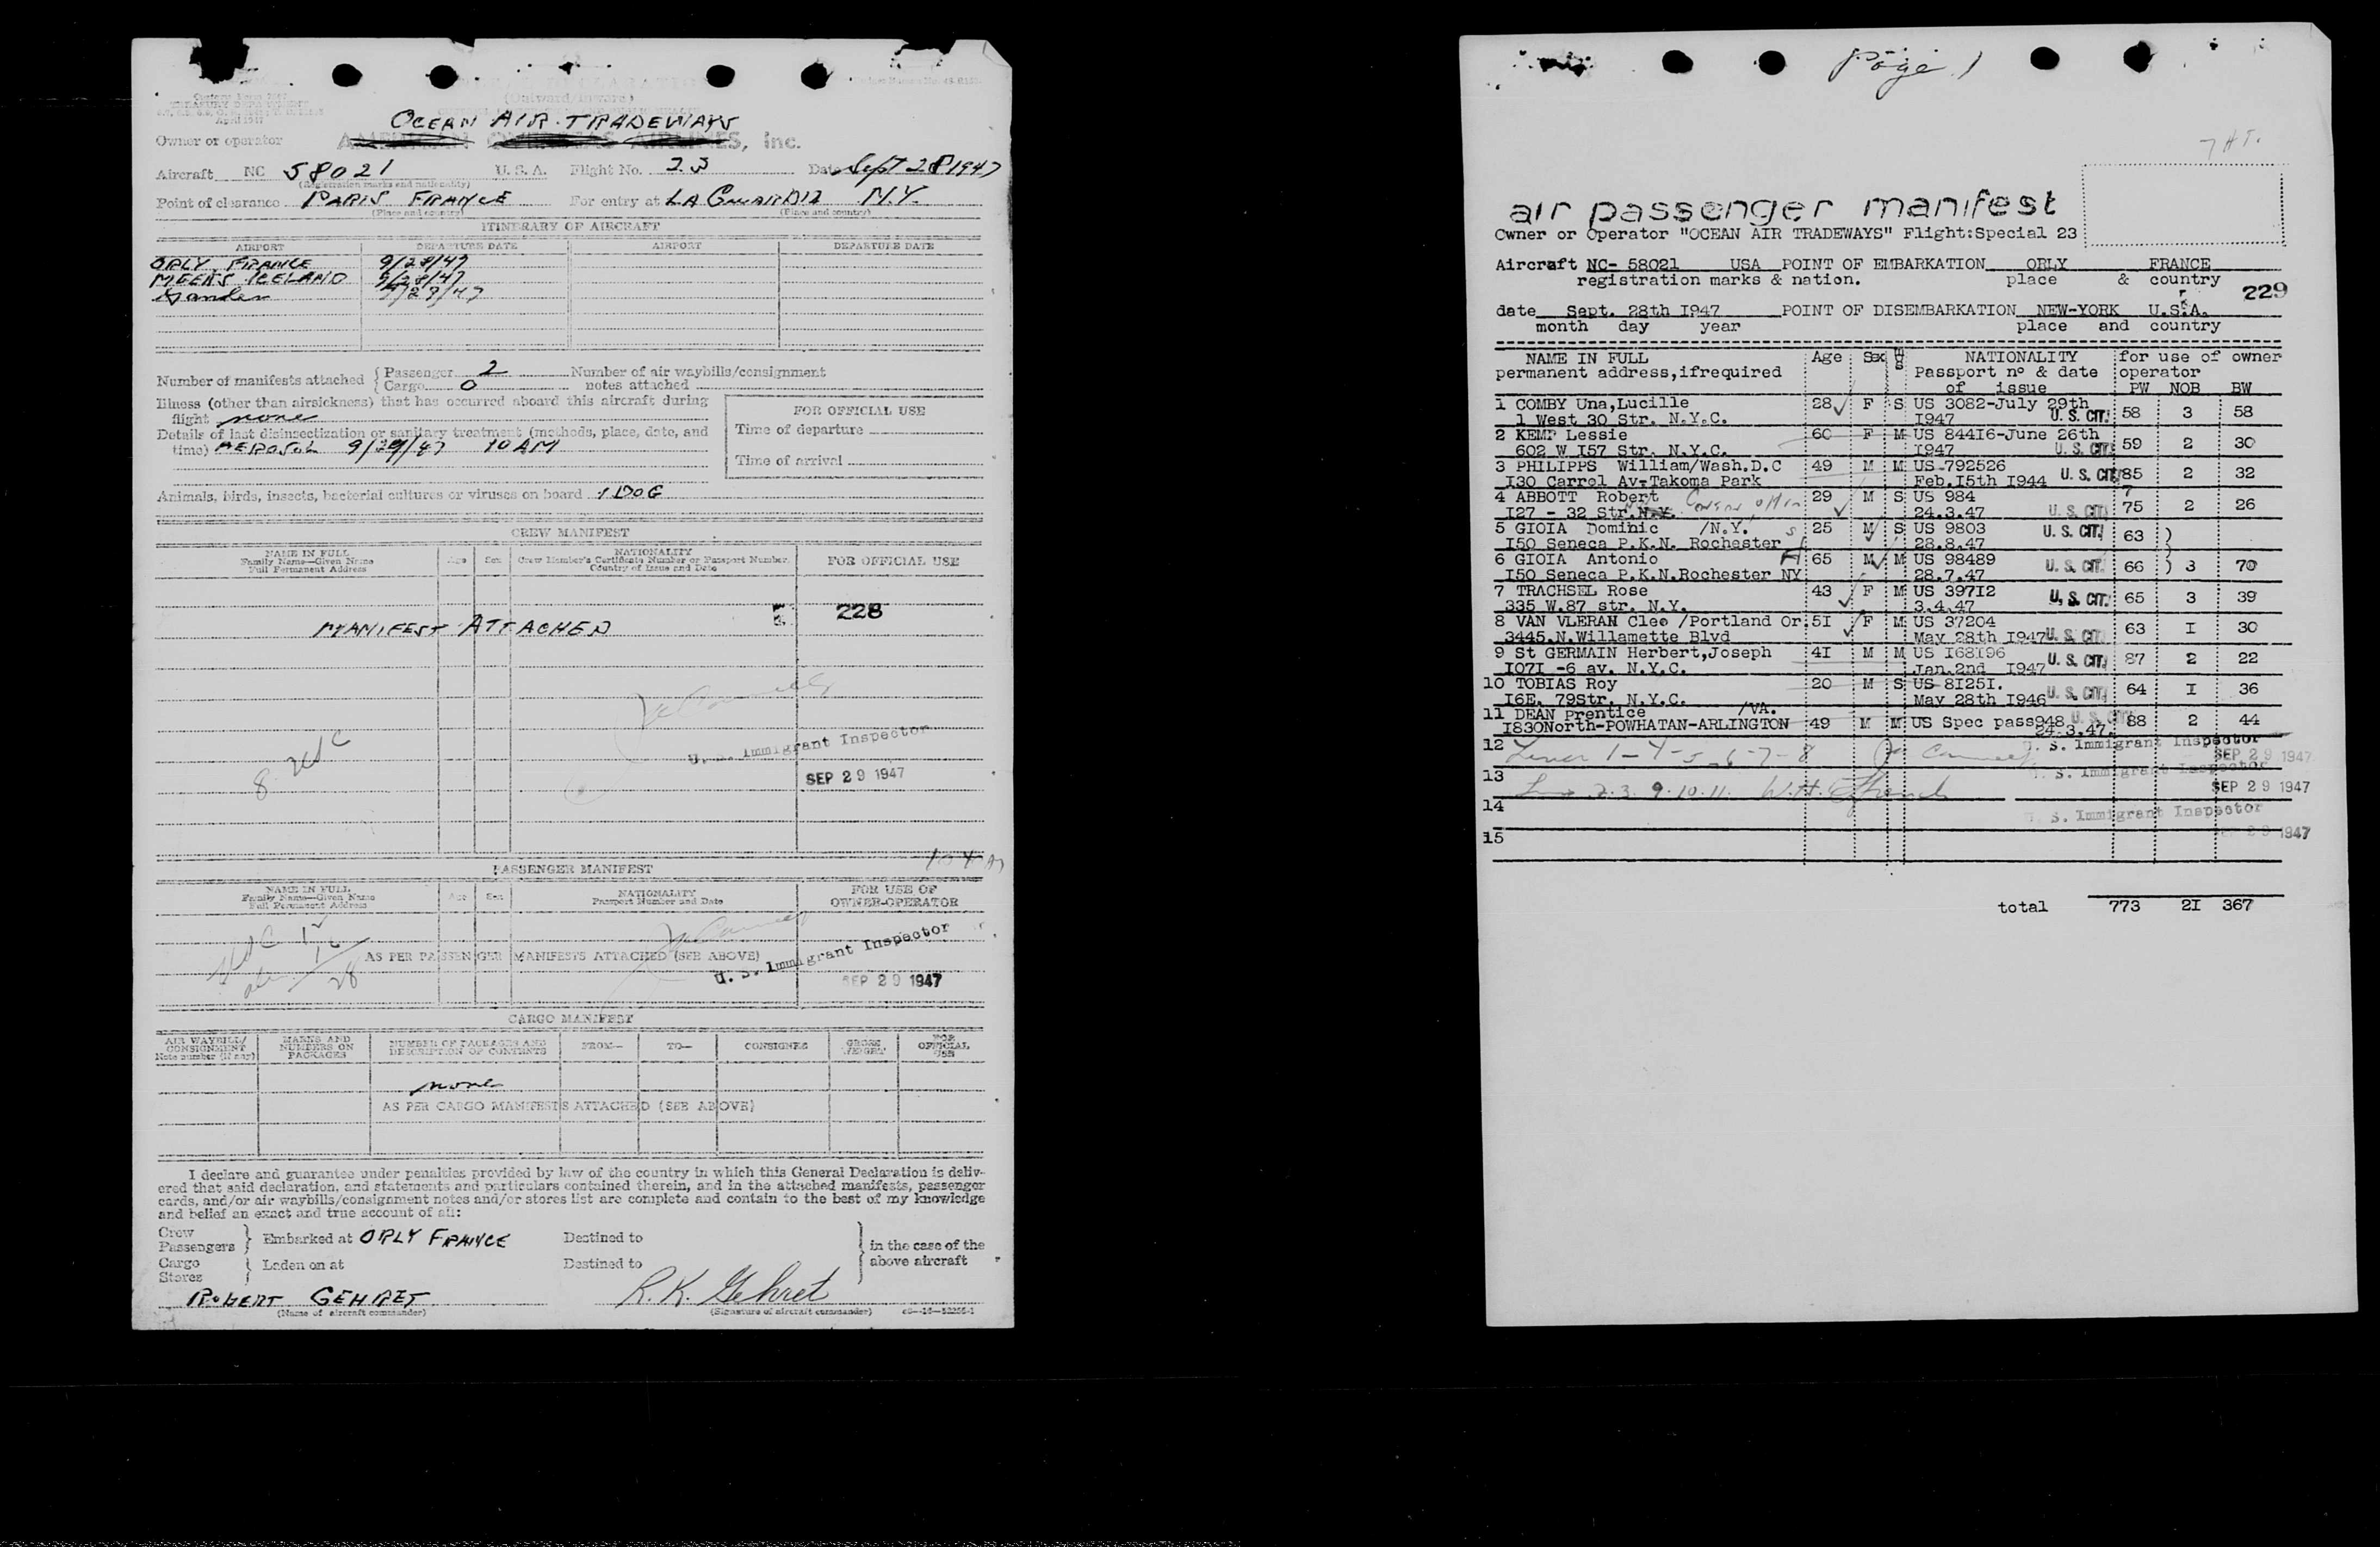 (Outward/Inward)
April 1947
OCEAN AIR TRADEWAYS
Owner or operator AMERICAN OVERSEAS AIRLINES, Inc.
Aircraft NC 58021 U. S. A. Flight No. 23 Date Sept 28 1947
(Registration marks and nationality)
Point of clearance PARIS FRANCE For entry at LA GUARDIA N.Y.
(Place and country) (Place and country)
ITINERARY OF AIRCRAFT
AIRPORT DEPARTURE DATE AIRPORT DEPARTURE DATE
ORLY, FRANCE 9/28/47
MEEKS ICELAND 9/28/47
Gander 9/29/47
Number of manifests attached { Passenger 2 Number of air waybills/consignment
Cargo 0 notes attached
Illness (other than airsickness) that has occurred aboard this aircraft during
flight none
FOR OFFICIAL USE
Details of last disinsectization or sanitary treatment (methods, place, date, and
time) AEROSOL 9/29/47 10 AM
Time of departure
Time of arrival
Animals, birds, insects, bacterial cultures or viruses on board 1 DOG
CREW MANIFEST
NAME IN FULL
Family Name—Given Name
Full Permanent Address
Age Sex
NATIONALITY
Crew Member's Certificate Number or Passport Number,
Country of Issue and Date
FOR OFFICIAL USE
228
MANIFEST ATTACHED
8 USC
U. S. Immigrant Inspector
SEP 29 1947
PASSENGER MANIFEST
NAME IN FULL
Family Name—Given Name
Full Permanent Address
Age Sex
NATIONALITY
Passport Number and Date
FOR USE OF
OWNER-OPERATOR
AS PER PASSENGER MANIFESTS ATTACHED (SEE ABOVE)
28
U. S. Immigrant Inspector
SEP 29 1947
CARGO MANIFEST
AIR WAYBILL/
CONSIGNMENT
Note number (if any)
MARKS AND
NUMBERS ON
PACKAGES
NUMBER OF PACKAGES AND
DESCRIPTION OF CONTENTS
FROM— TO— CONSIGNEE
GROSS
WEIGHT
FOR
OFFICIAL
USE
none
AS PER CARGO MANIFESTS ATTACHED (SEE ABOVE)
I declare and guarantee under penalties provided by law of the country in which this General Declaration is deliv-
ered that said declaration, and statements and particulars contained therein, and in the attached manifests, passenger
cards, and/or air waybills/consignment notes and/or stores list are complete and contain to the best of my knowledge
and belief an exact and true account of all:
Crew
Passengers } Embarked at ORLY FRANCE Destined to
Cargo
Stores } Laden on at Destined to
in the case of the
above aircraft
ROBERT GEHRET R. K. Gehret
(Name of aircraft commander) (Signature of aircraft commander)
Page 1
air passenger manifest
Owner or Operator "OCEAN AIR TRADEWAYS" Flight:Special 23
Aircraft NC- 58021 USA POINT OF EMBARKATION ORLY FRANCE
registration marks & nation. place & country
229
date Sept. 28th I947 POINT OF DISEMBARKATION NEW-YORK U.S.A.
month day year place and country
NAME IN FULL Age Sex NATIONALITY for use of owner
permanent address,ifrequired Passport n° & date operator
of issue PW NOB BW
1 COMBY Una,Lucille 28 F S US 3082-July 29th
1 West 30 Str. N.Y.C. I947 U. S. CIT. 58 3 58
2 KEMP Lessie 60 F M US 844I6-June 26th
602 W I57 Str. N.Y.C. I947 U. S. CIT. 59 2 30
3 PHILIPPS William/Wash.D.C 49 M M US-792526
I30 Carrol Av-Takoma Park Feb.I5th I944 U. S. CIT. 85 2 32
4 ABBOTT Robert 29 M S US 984
I27 - 32 Str.N.Y. 24.3.47 U. S. CIT. 75 2 26
5 GIOIA Dominic /N.Y. 25 M S US 9803
I50 Seneca P.K.N. Rochester 28.8.47 U. S. CIT. 63 )
6 GIOIA Antonio 65 M M US 98489
I50 Seneca P.K.N.Rochester NY 28.7.47 U. S. CIT. 66 ) 3 70
7 TRACHSEL Rose 43 F M US 397I2
335 W.87 str. N.Y. 3.4.47 U. S. CIT. 65 3 39
8 VAN VLERAN Cleo /Portland Or 5I F M US 37204
3445.N.Willamette Blvd May 28th I947 U. S. CIT. 63 I 30
9 St GERMAIN Herbert,Joseph 4I M M US I68I96
I07I -6 av. N.Y.C. Jan.2nd I947 U. S. CIT. 87 2 22
10 TOBIAS Roy 20 M S US 8I25I.
I6E. 79Str. N.Y.C. May 28th I946 U. S. CIT. 64 I 36
11 DEAN Prentice /VA.
I830North-POWHATAN-ARLINGTON 49 M M US Spec pass948 U. S. CIT. 88 2 44
24-3.47.
12 Lines 1-4-5-6-7-8 U. S. Immigrant Inspector
SEP 29 1947
13 2.3. 9.10.11. W.H. U. S. Immigrant Inspector
SEP 29 1947
14 U. S. Immigrant Inspector
15 1947
total 773 2I 367